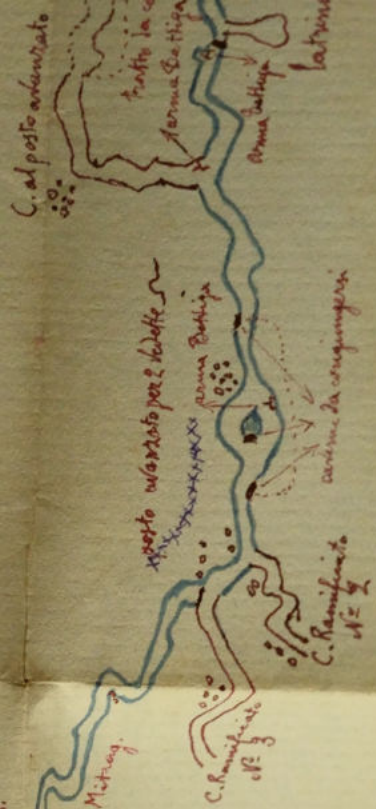 C. al posto avanzato
tratto da co
arma Bettiga
arma Bettiga
latrine
posto avanzato per 2 Vedette
arma Bettiga
caverne da congiungersi
C. Ramificato
N= 2
C. Ramificato
N= 3
Mitrag.